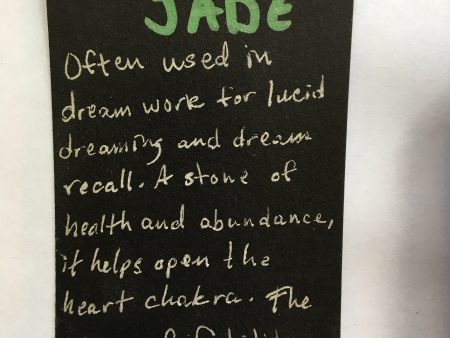 JADE
Often used in
dream work for lucid
dreaming and dream
recall. A stone of
health and abundance,
it helps open the
heart chakra. The